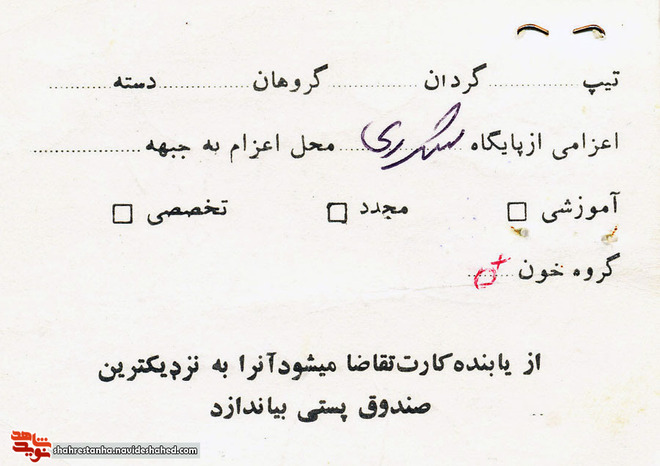 تیپ .......... گردان .......... گروهان .......... دسته ..........
اعزامی از پایگاه .......... محل اعزام به جبهه ..........
آموزشی □ مجدد □ تخصصی □
گروه خون O+
از یابنده کارت تقاضا میشود آنرا به نزدیکترین
صندوق پستی بیاندازد
نوید شاهد
shahrestanha.navideshahed.com